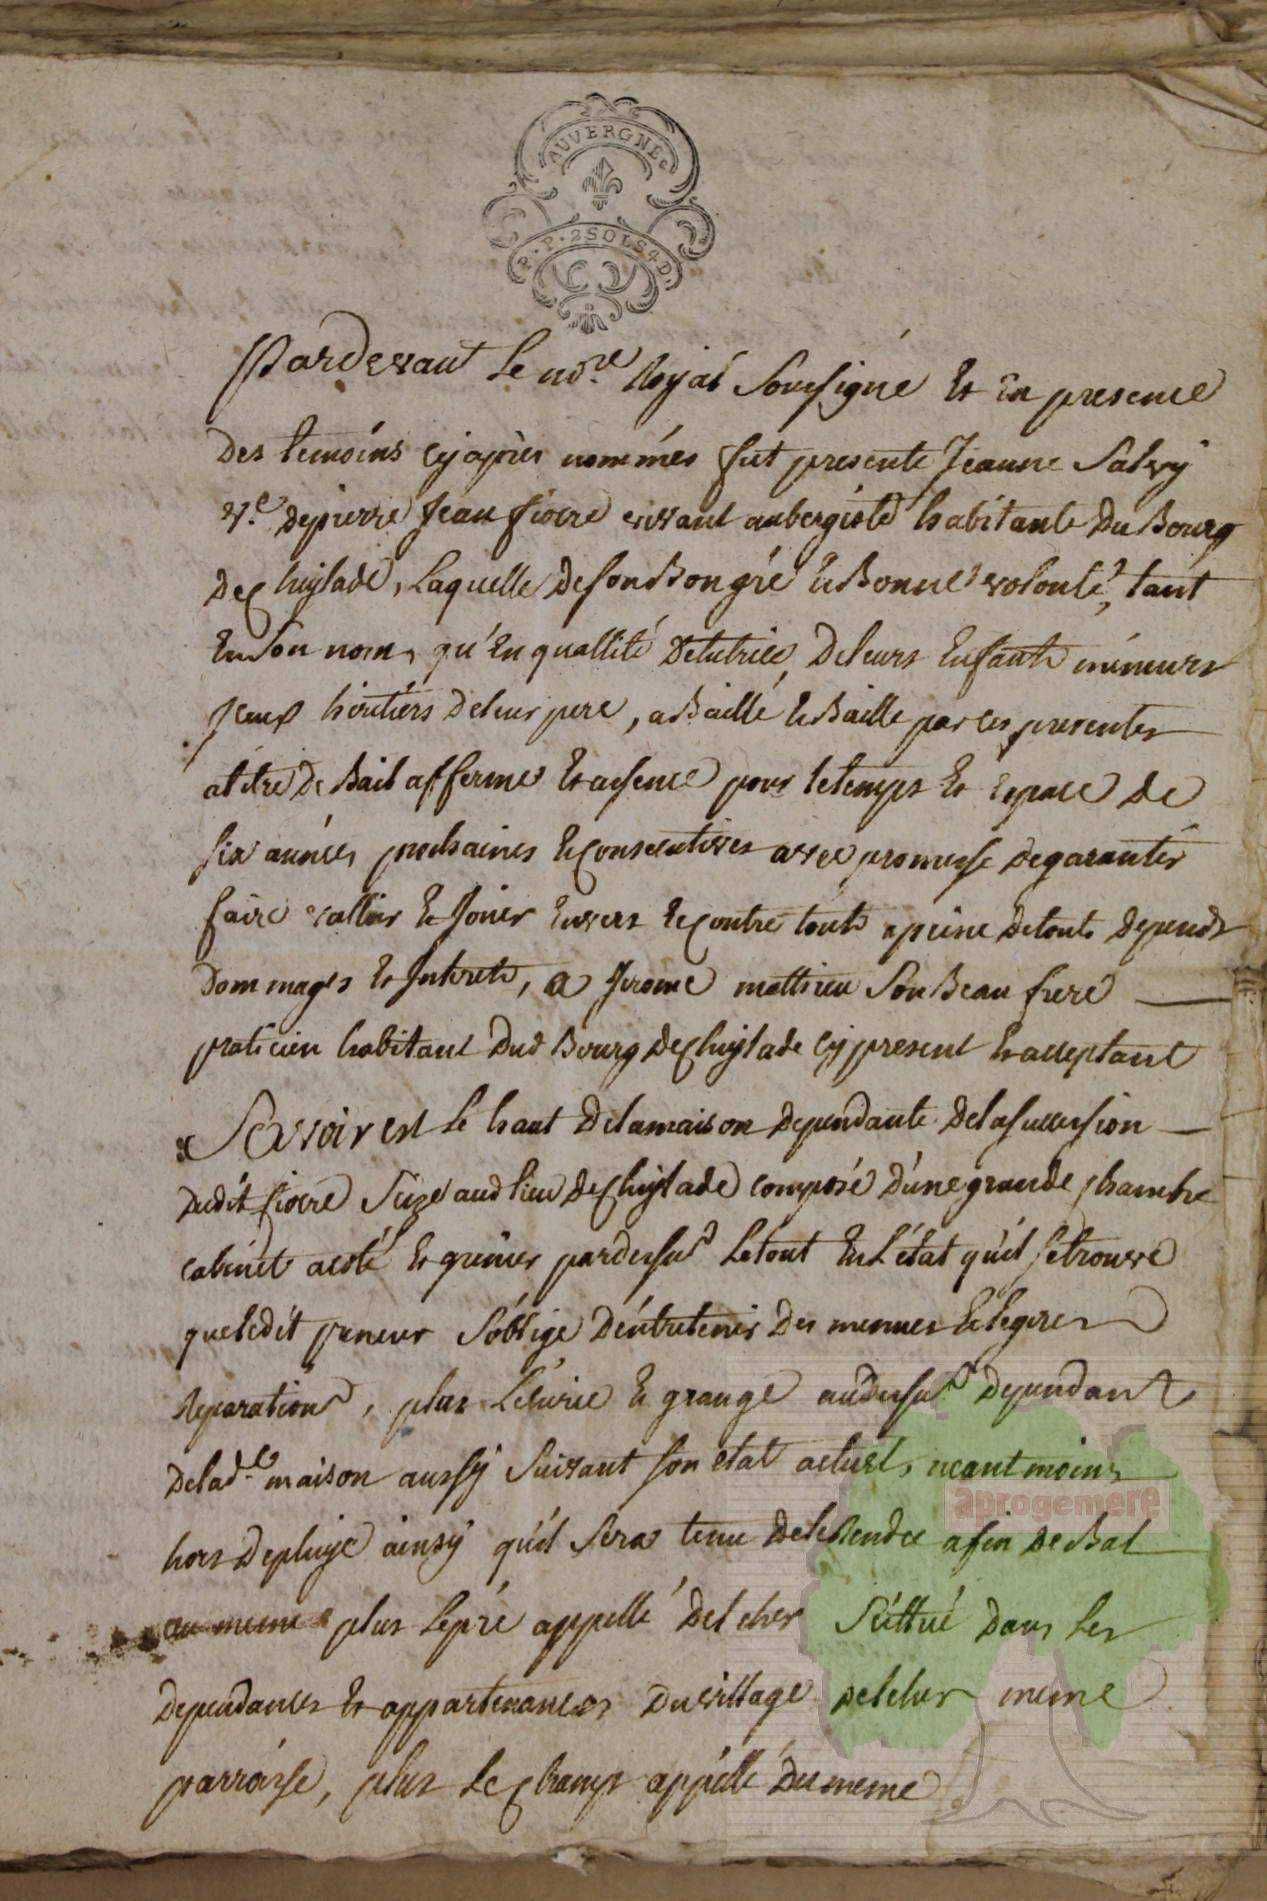 AUVERGNE
P.P. 2 SOLS 4 D.
Pardevant Le no.re Royal Soussigné Et En presence
Des temoins cyapres nommés fut presente Jeanne Salvy
v.e de pierre Jean fiocre vivant aubergiste habitante Du Bourg
De Cheylade, Laquelle De son Bon gré Et Bonne volonté, tant
En Son nom, qu'En quallité De tutrice De leurs Enfants mineurs
heritiers De leur pere, a Baillé Et Baille par ces presentes
a titre De Bail afferme Et assence pour le temps Et Espace De
six années prochaines Et Consecutives avec promesse De garantir
faire valloir Et Jouir Envers Et Contre touts a peine De touts Depends
Dommages Et Interets, a Jerome mathieu Son Beau frere
praticien habitant Dud Bourg De Cheylade Cy present Et acceptant
Savoir est Le haut De la maison Dependante De la succession
Dudit fiocre Size aud lieu De Cheylade composé D'une grande chambre
cabinet a coté Et grenier par dessus Le tout En L'état qu'il se trouve
que ledit preneur S'oblige D'entretenir Des menues Et legeres
Reparations, plus L'ecurie Et grange au dessus Dependant
De lad.e maison aussy Suivant son état actuel, neantmoins
hors De pluye ainsy qu'il Sera tenu De le Rendre a fin De Bal
au meme plus Le pré appellé Del cher Scittué Dans Les
Dependances Et appartenances Du village Del cher meme
parroisse, plus Le Champ appellé Du meme
aprogemere